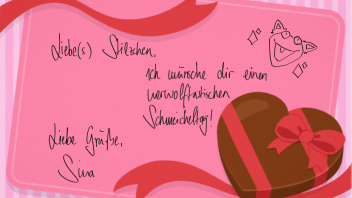 Liebe(s) Stilzchen,
ich wünsche dir einen
werwolftastischen
Schmeicheltag!
Liebe Grüße,
Sina